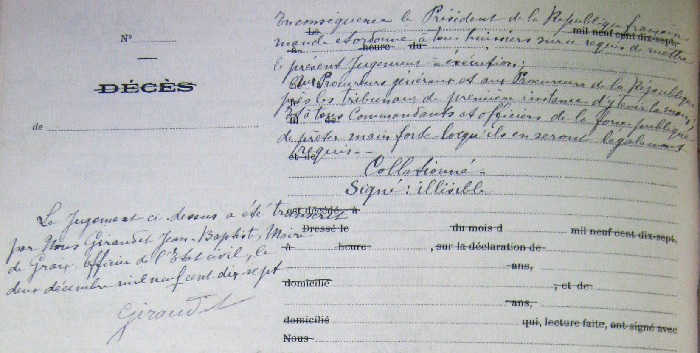 N°
DÉCÈS
de
En conséquence le Président de la République française
mande et ordonne à tous huissiers sur ce requis de mettre
le présent Jugement à exécution;
Aux Procureurs généraux et aux Procureurs de la République
près les tribunaux de première instance d'y tenir la main,
Et à tous Commandants et officiers de la force publique
de prêter main forte lorsqu'ils en seront légalement
requis.
Collationné
Signé : illisible
Le
mil neuf cent dix-sept,
heure du
et de
est décédé à
Dressé le du mois d mil neuf cent dix-sept,
à heure , sur la déclaration de
ans,
domicilié , et de
ans,
domicilié qui, lecture faite, ont signé avec
Nous
Le Jugement ci dessus a été transcrit
par Nous Giraudet Jean-Baptiste, Maire
de officier de l'Etat civil, le
deux décembre mil neuf cent dix sept
Giraudet